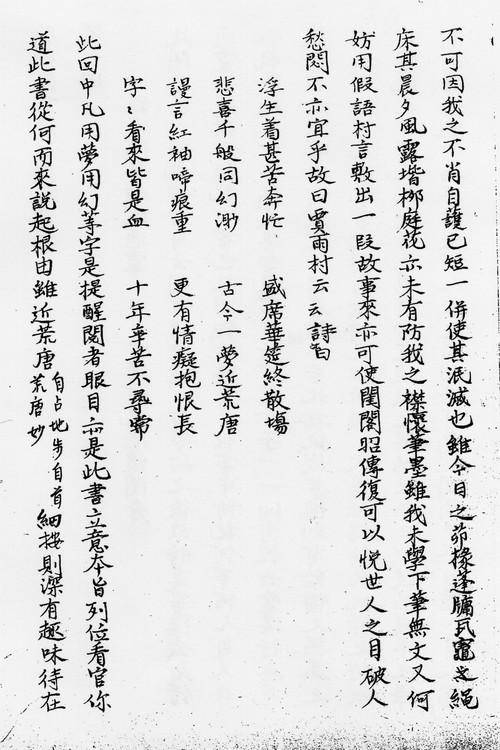 不可因我之不肖自護已短一併使其泯滅也雖今日之茆椽蓬牖瓦竈之繩
床其晨夕風露堦栁庭花亦未有防我之襟懷筆墨雖我未學下筆無文又何
妨用假語村言敷出一段故事來亦可使閨閣昭傳復可以悅世人之目破人
愁悶不亦宜乎故曰賈雨村云云詩曰
浮生着甚苦奔忙　盛席華筵終散塲
悲喜千般同幻渺　古今一夢近荒唐
謾言紅袖啼痕重　更有情癡抱恨長
字〻看來皆是血　十年辛苦不尋常
此回中凡用夢用幻等字是提醒閱者眼目亦是此書立意本旨列位看官你
道此書從何而來說起根由雖近荒唐
自占地步自首
荒唐妙
細按則深有趣味待在